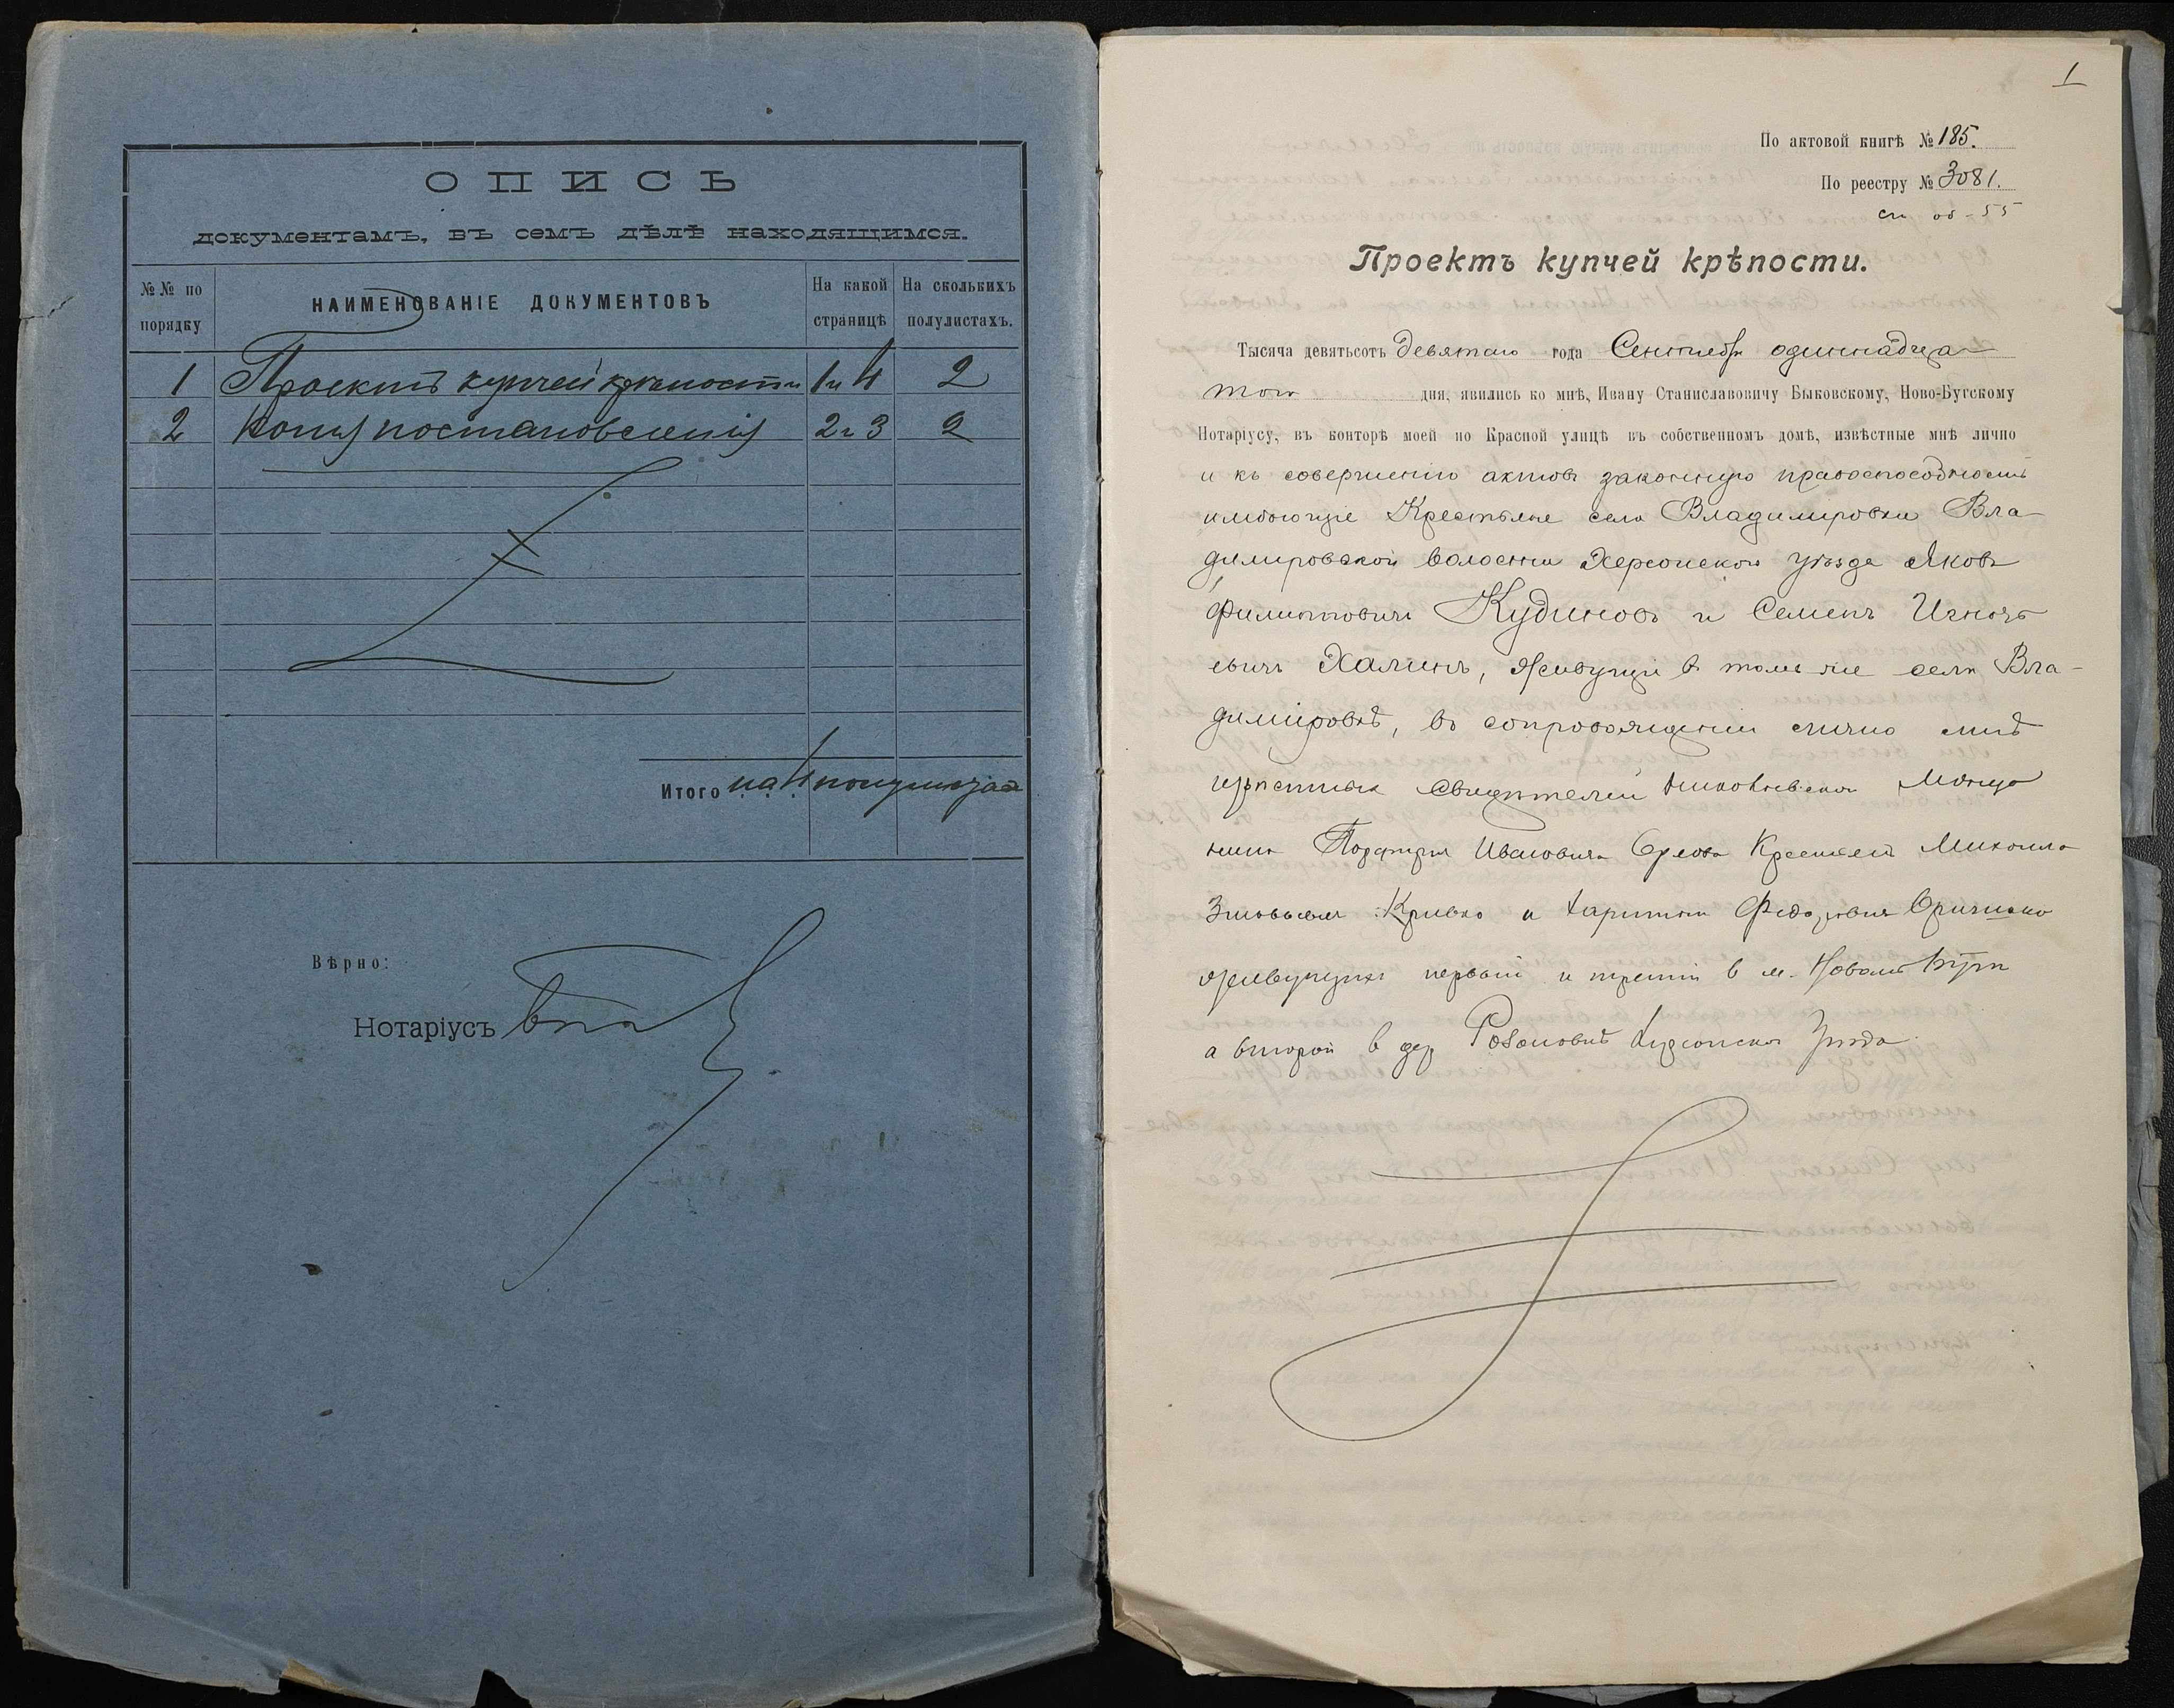 ОПИСЬ
документамъ, въ семъ дѣлѣ находящимся.
№№ по порядку
НАИМЕНОВАНІЕ ДОКУМЕНТОВЪ
На какой страницѣ
На сколькихъ полулистахъ.
1 Проектъ купчей крѣпости 1 и 4 2
2 Копія постановленія 2 и 3 2
Итого на 4 полулистахъ
Вѣрно:
Нотаріусъ
1
По актовой книгѣ № 185.
По реестру № 3081.
55
Проектъ купчей крѣпости.
Тысяча девятьсотъ девятаго года Сентября одиннадца
того дня, явились ко мнѣ, Ивану Станиславовичу Быковскому, Ново-Бугскому
Нотаріусу, въ конторѣ моей по Красной улицѣ въ собственномъ домѣ, извѣстные мнѣ лично
и къ совершенію актовъ законную правоспособность
имѣющіе Крестьяне села Владимировки Вла-
димировской волости Херсонскаго уѣзда Яковъ
Филипповичъ Кудиновъ и Семенъ Игнать
евичъ Халинъ, живущіе въ томъ же селѣ Вла-
димировкѣ, въ сопровожденіи лично мнѣ
извѣстныхъ свидѣтелей Николаевскаго Мѣща
нина Порфирія Ивановича Орлова Крестьянъ Михаила
Зиновьева Кривко и Харитона Федоровича
живущихъ первый и третій въ м. Новомъ Бугѣ
а второй въ дер. Херсонскаго уѣзда.